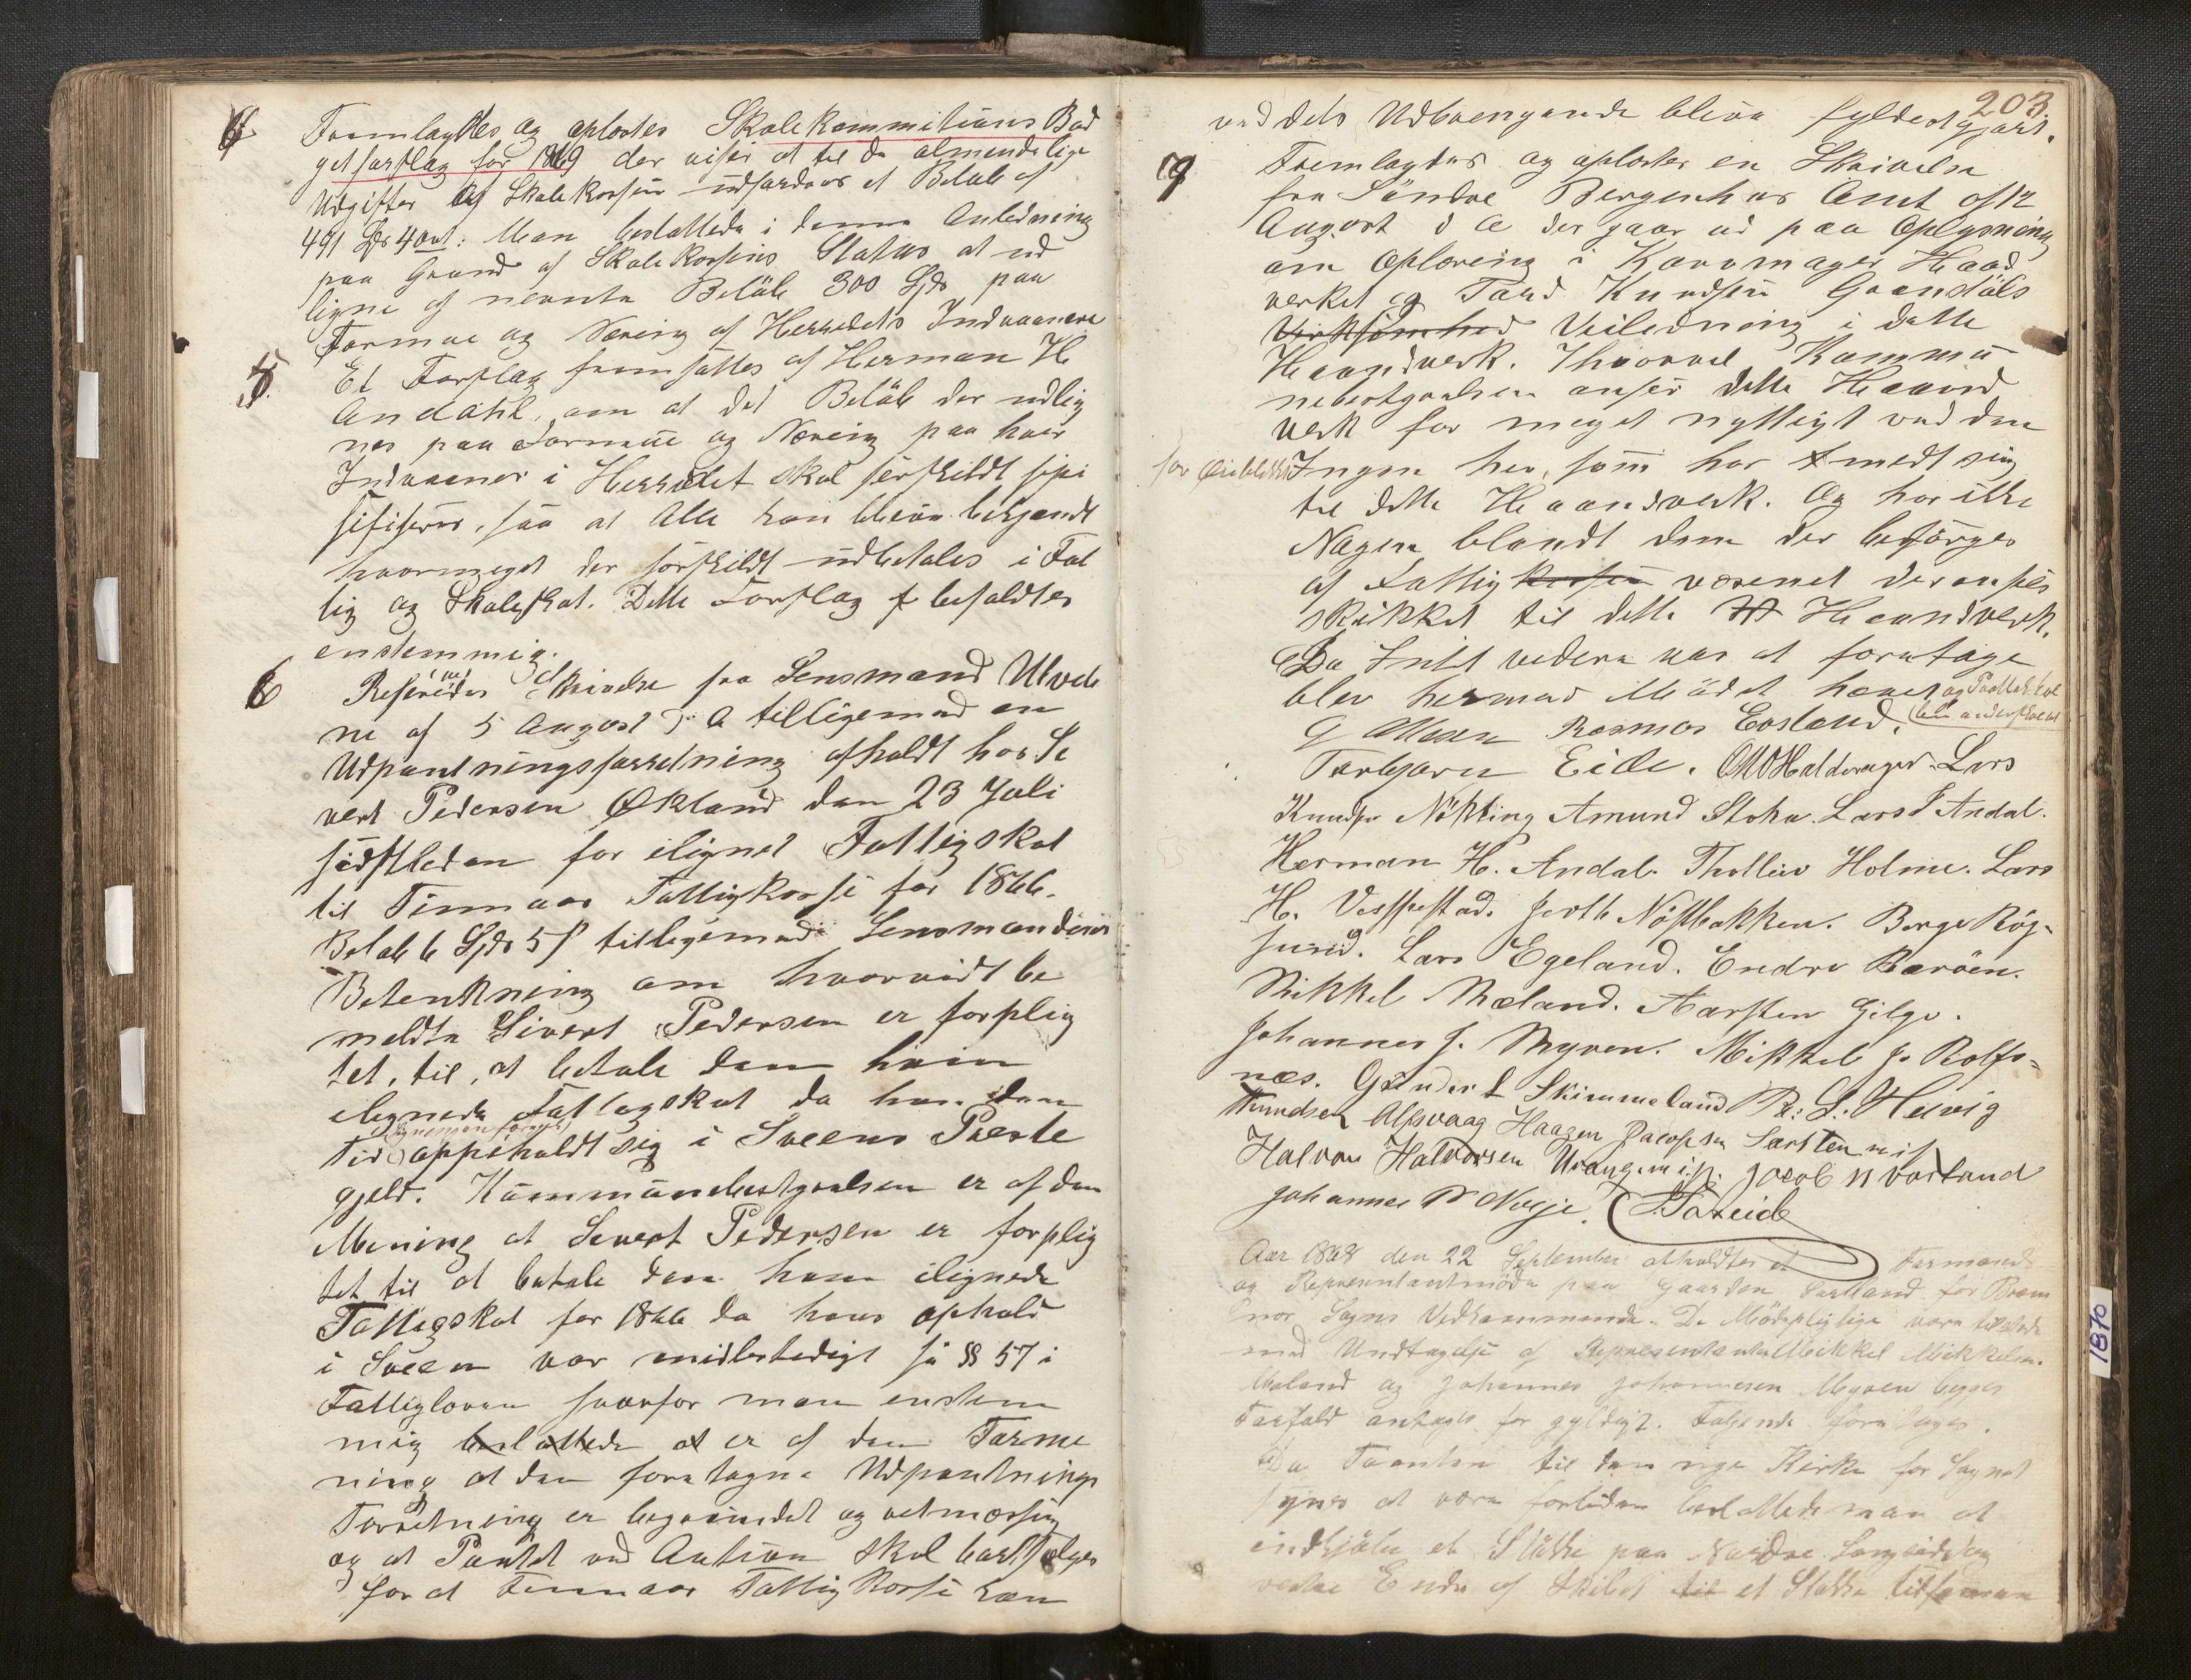 4 Fremlagdes og oplæstes Skolekommitionens Bud
getforslag for 1869 der viser at til de almindelige
Udgifter af Skolekassen udfordres et Beløb af
491 Spd 4 ort: Man besluttede i denne Anledning
paa Grund af Skolekassens Status at ud
ligne af nevnte Beløb 300 Spd paa
Formue og Næring af Herredets Indvaanere
5. Et Forslag fremsattes af Herman H
Andahl, om at det Beløb der udlig
nes paa Formue og Næring paa hver
Indvaaner i Herredet skal serskildt spe
sifiseres, saa at Alle kan blive bekjendt
hvormeget der særskildt udbetales i Fat
tig og Skoleskat. Dette Forslag bifaldtes
enstemmig.
6 Refereredes Skrivelse fra Lensmand Utvek
ne af 5 August d. A tilligemed en
Udpantningsforretning afholdt hos Si
vert Pedersen Økland den 23 Juli
sidstleden for ilignet Fattigskat
til Finnaas Fattigkasse for 1866.
Beløb 6 Spd 5 s tilligemed Lensmandens
Betenkning om hvorvidt be
meldte Sivert Pedersen er forplig
tet, til, at betale den ham
ilignede Fattigskat da han den
Tid oppeholdt sig i Sveens Præste
gjeld. Kommunebestyrelsen er af den
Mening at Sivert Pedersen er forplig
tet til at betale den ham ilignede
Fattigskat for 1866 da hans ophold
i Sveen var midlertidigt jfr §§ 57 i
Fattigloven hvorfor man enstem
mig besluttede at er af den Forme
ning at den foretagne Udpantnings
Forretning er begrundet og retmæssig
og at Pantet ved Auksion skal bortselges
for at Finnaas Fattigkasse kan
203
ved dets Udbrengende blive fyldestgjort.
7 Fremlagdes og oplæstes en Skrivelse
fra Søndre Bergenhus Amt af 12
August d A der gaar ud paa Oplysning
om Oplæring i Kurvmager Haand
verket og Tard Knudsen Grendals
Virksomhed Veiledning i dette
Haandverk. Ihvorvel Kommu
nebestyrelsen anser dette Haand
verk for meget nyttigt ved den
for Øieblikket Ingen her, som har nemt sig
til dette Haandverk. Og har ikke
Nogen blandt dem der besørges
af Fattigkassen væsenet der anses
skikket til dette Haandverk.
Da Intet videre var at foretage
blev hermed Mødet hævet og Protokol
len underskrevet
G Olsen Rasmus Evsland.
Torbjørn Eide. O M Halderager. Lars
Knuds Nøkling Amund Stoka. Lars T Andal.
Herman H. Andal. Thollew Holme. Lars
H. Vestpestad. Jerth Nøstbakken. Børge Røg-
sund. Lars Egeland. Endre Barøen.
Mikkel Mæland. Karsten Gilge.
Johannes J. Myren. Mikkel J. Rolfs-
næs. Gunder L Skimmeland R: L: Helvig
Knudsen Alfsvaag Haagen Jacopsen Særsten
Halvor Halvorsen Urang Jacob N Vorland
Johannes N Meje. Tareide
Aar 1868 den 22 September afholdtes et Formands
og Representantmøde paa Gaarden Vorland for Brem
nes Sogns Vedkommende. De Mødepligtige vare tilstede
med Undtagelse af Representanterne Mikkel Mikkelsen
Mæland og Johannes Johannesen Myren begges
Forfald antages for gyldigt. Følgende foretoges.
Da Tomten til den nye Kirke for Sognet
synes at være forliden besluttede man at
indkjøbe et Stykke paa Nordre Langside og
vestre Ende af Skibet til et Stykke tilsammen